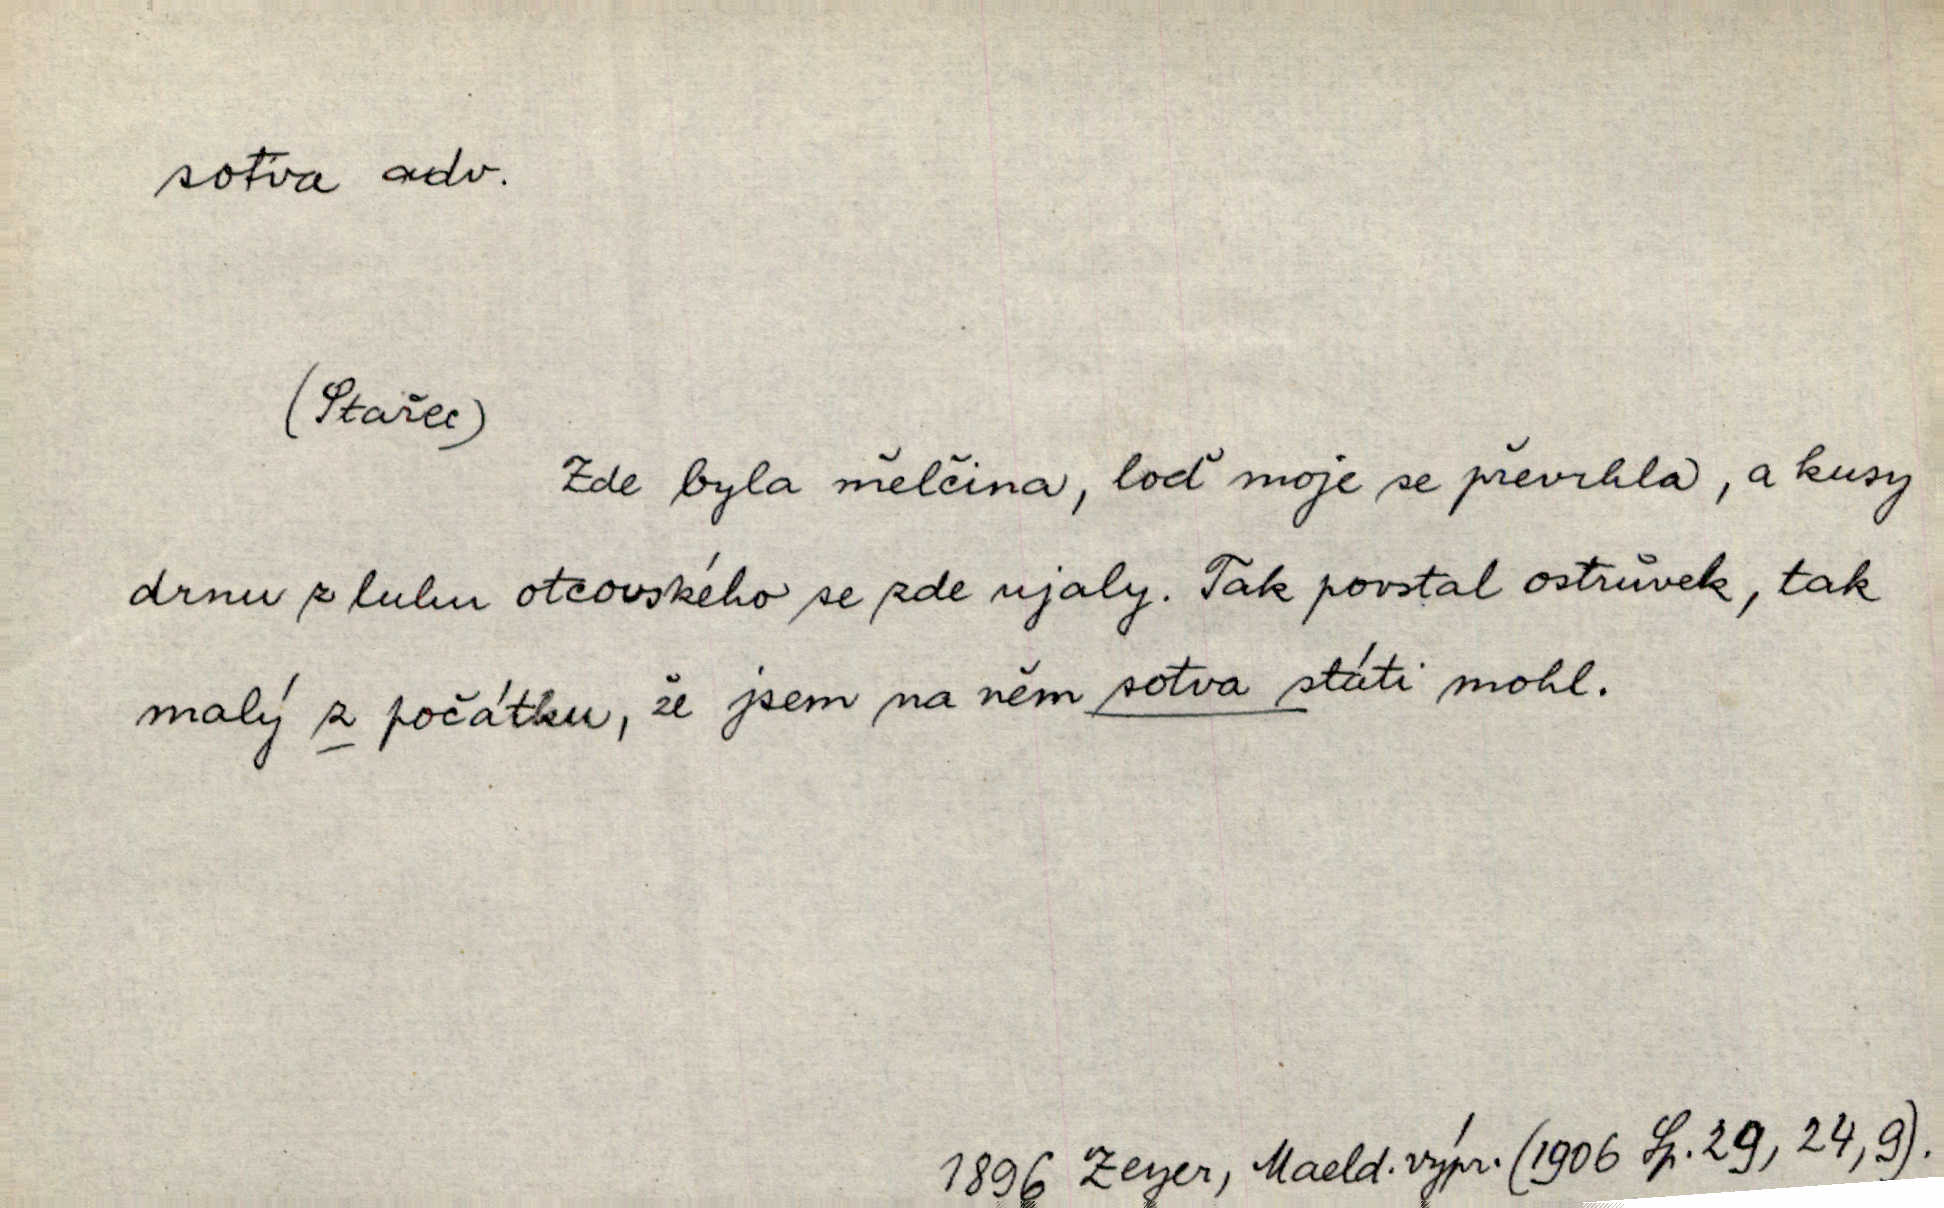 sotva adv.
(Stařec)
Zde byla mělčina, loď moje se převrhla, a kusy
drnu z luhu otcovského se zde ujaly. Tak povstal ostrůvek, tak
malý z počátku, že jsem na něm sotva státi mohl.
1896 Zeyer, Maeld. výpr. (1906 Sp. 29, 24, 9).